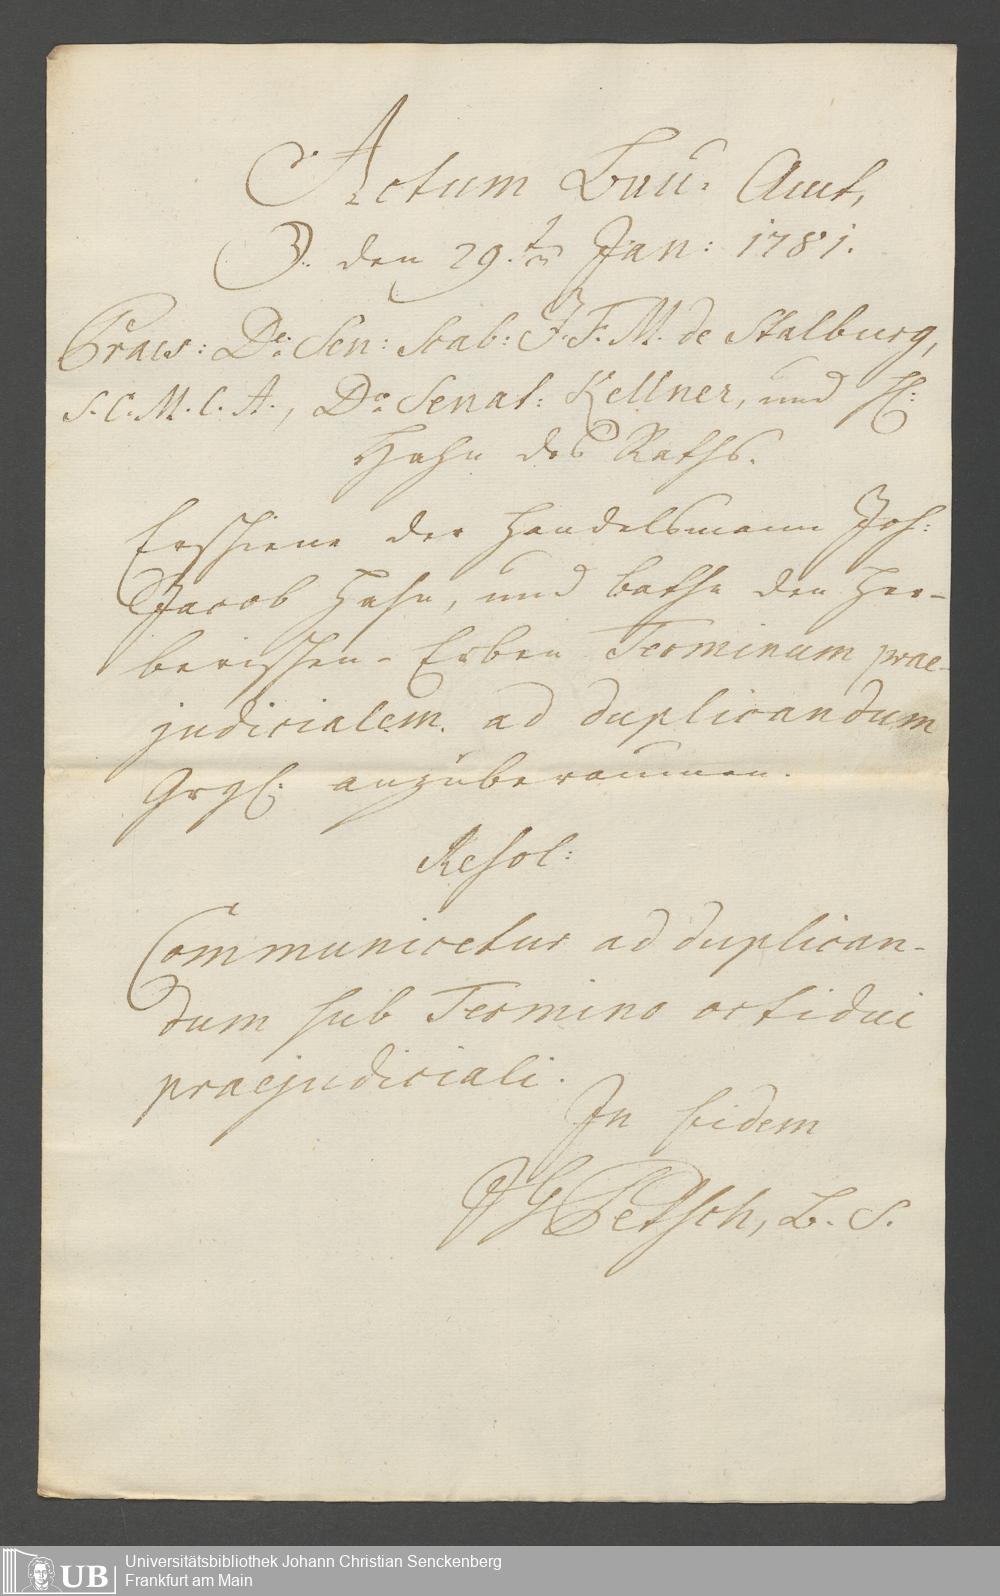 Actum Bau-Amt,
den 29.ten Jan: 1781.
Praes: Do: Sen: Scab: J. F. M. de Stalburg,
S. C. M. C. A., Do Senat: Kellner, und H:
Hahn des Raths.
Erschiene der Handelsmann Joh:
Jacob Hahn, und bathe den Her-
berischen-Erben Terminum prae-
judicialem ad duplicandum
anzuberaumen.
Resol:
Communicetur ad duplican-
dum sub Termino octidui
praejudiciali.
In fidem
JG Petsch, B. S.
UB Universitätsbibliothek Johann Christian Senckenberg
Frankfurt am Main